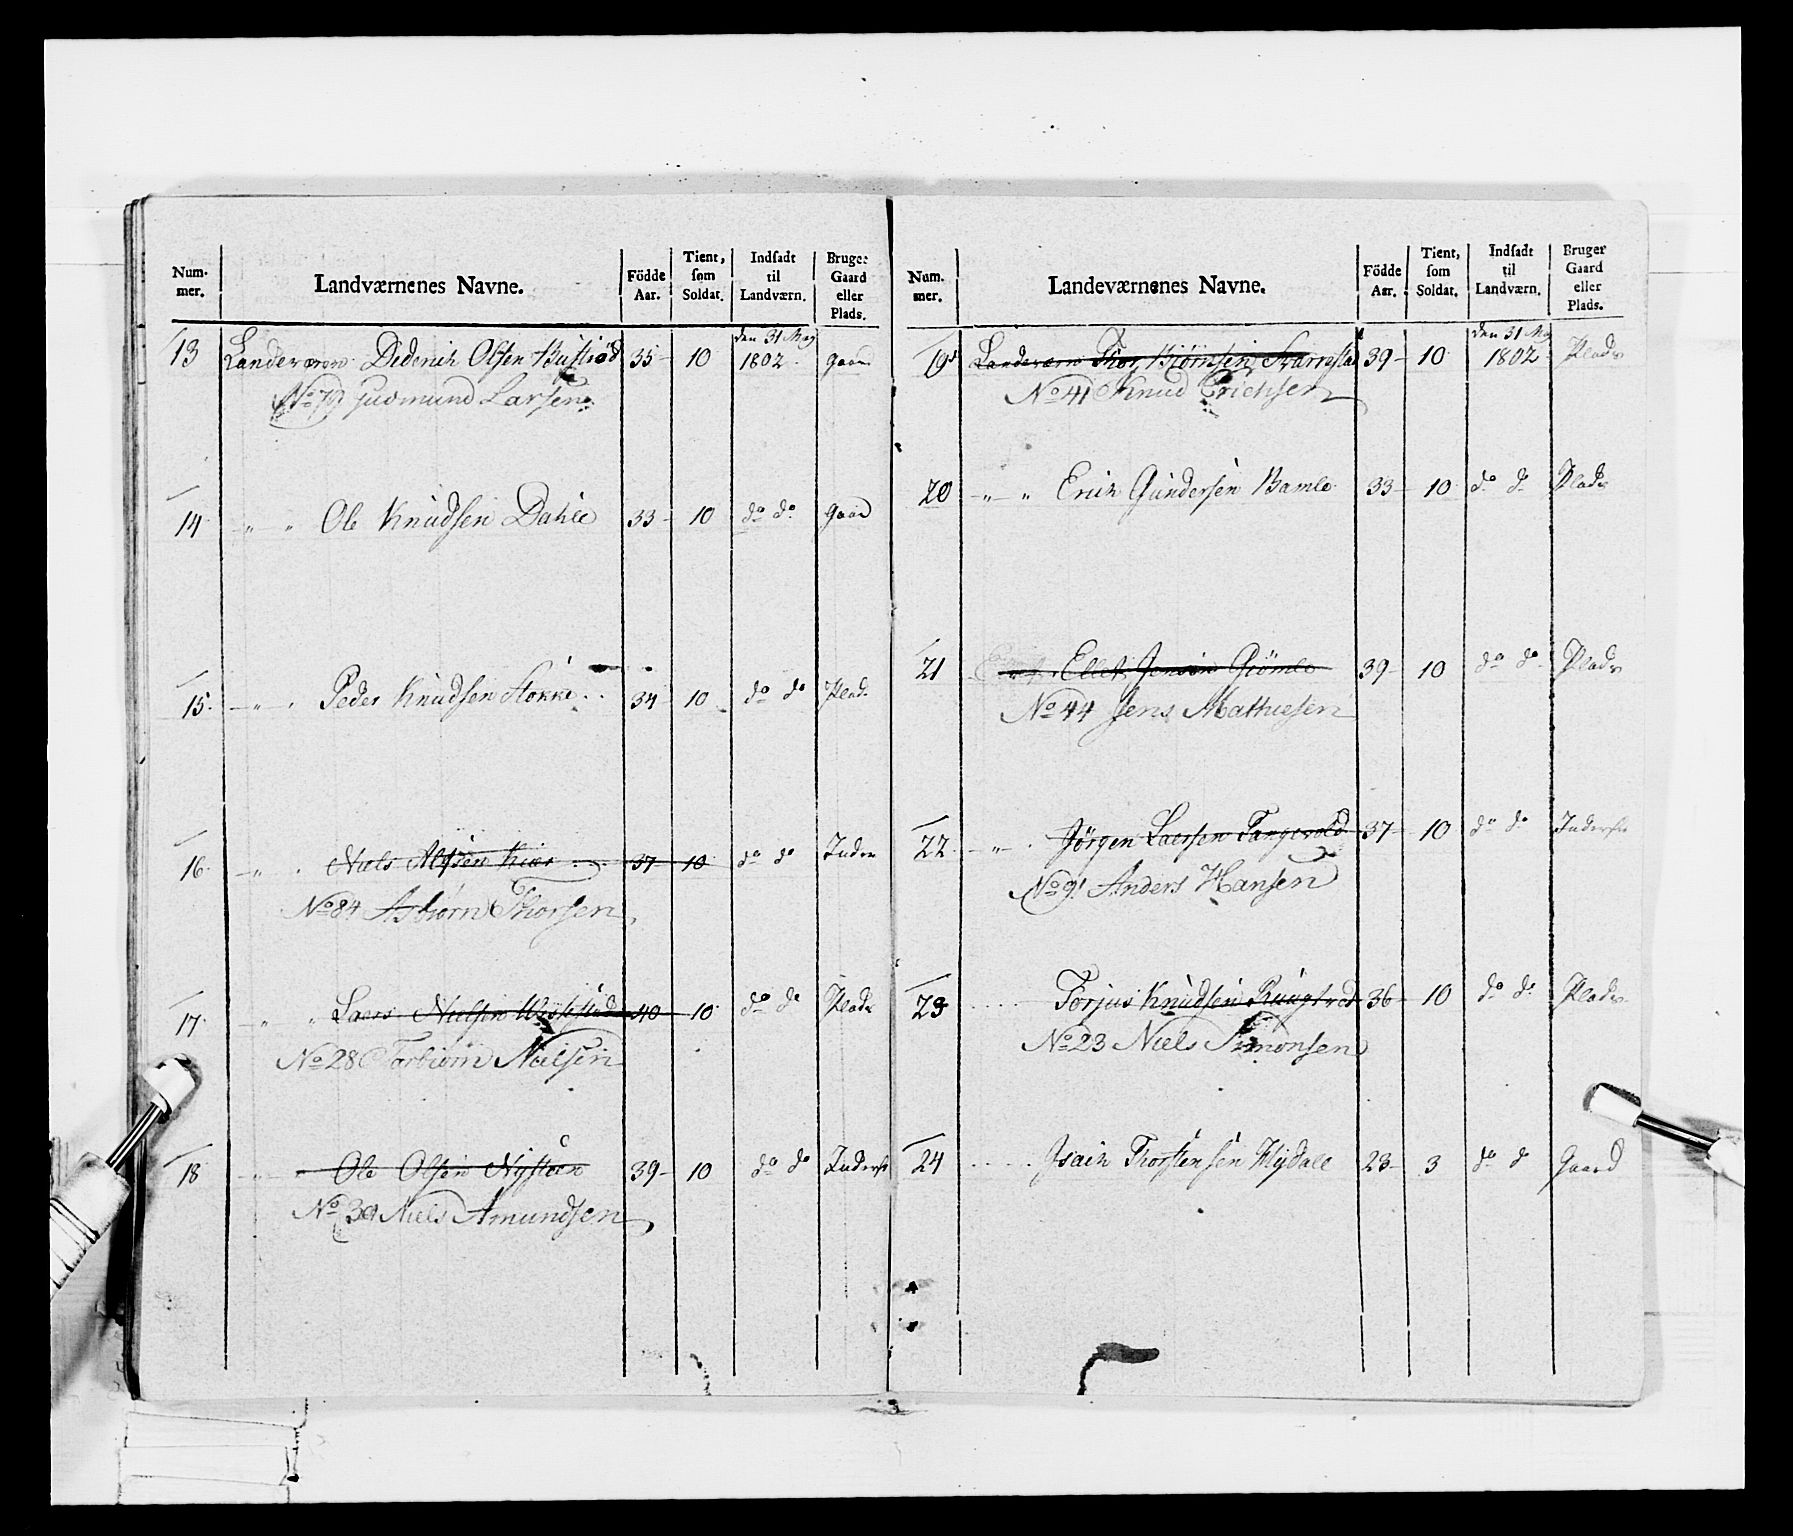 Num-mer. Landværnenes Navne. Födde Aar. Tient, som Soldat. Indsadt til Landværn. Bruger Gaard eller Plads.
13 Landeværn Diderich Olsen 35 10 den 31 May 1802 gaard
No 79 Gudmund Larsen
14 " " Ole Knudsen Dahle 33 10 do do gaard
15 " " Peder Knudsen Stokke 34 10 do do Plads
16 " " Niels Kiær 37 10 do do Inder
No 84 Asbiørn Thorsen
17 " " Laers Nielsen 40 10 do do Plads
No 28 Torbiørn Nielsen
18 " Ole Olsen Nysteen 39 10 do do Inderst
No 39 Niels Amundsen
Num-mer. Landeværnenes Navne. Födde Aar. Tient, som Soldat. Indsadt til Landværn. Bruger Gaard eller Plads.
19 Landeværn Thor Biörnsen 39 10 den 31 May 1802 Plads
No 41 Knud Erichsen
20 " " Erich Gundersen Bamle 33 10 do do Plads
21 Ellef Jensen Giömle 39 10 do do Plads
No 44 Jens Mathiesen
22 " Jörgen Laersen Tangvold 37 10 do do Inderst
No 91 Anders Hansen
23 Torjus Knudsen 36 10 do do Plads
No 23 Niels Simonsen
24 Isach Thorstensen Flijdalle 23 3 do do Gaard